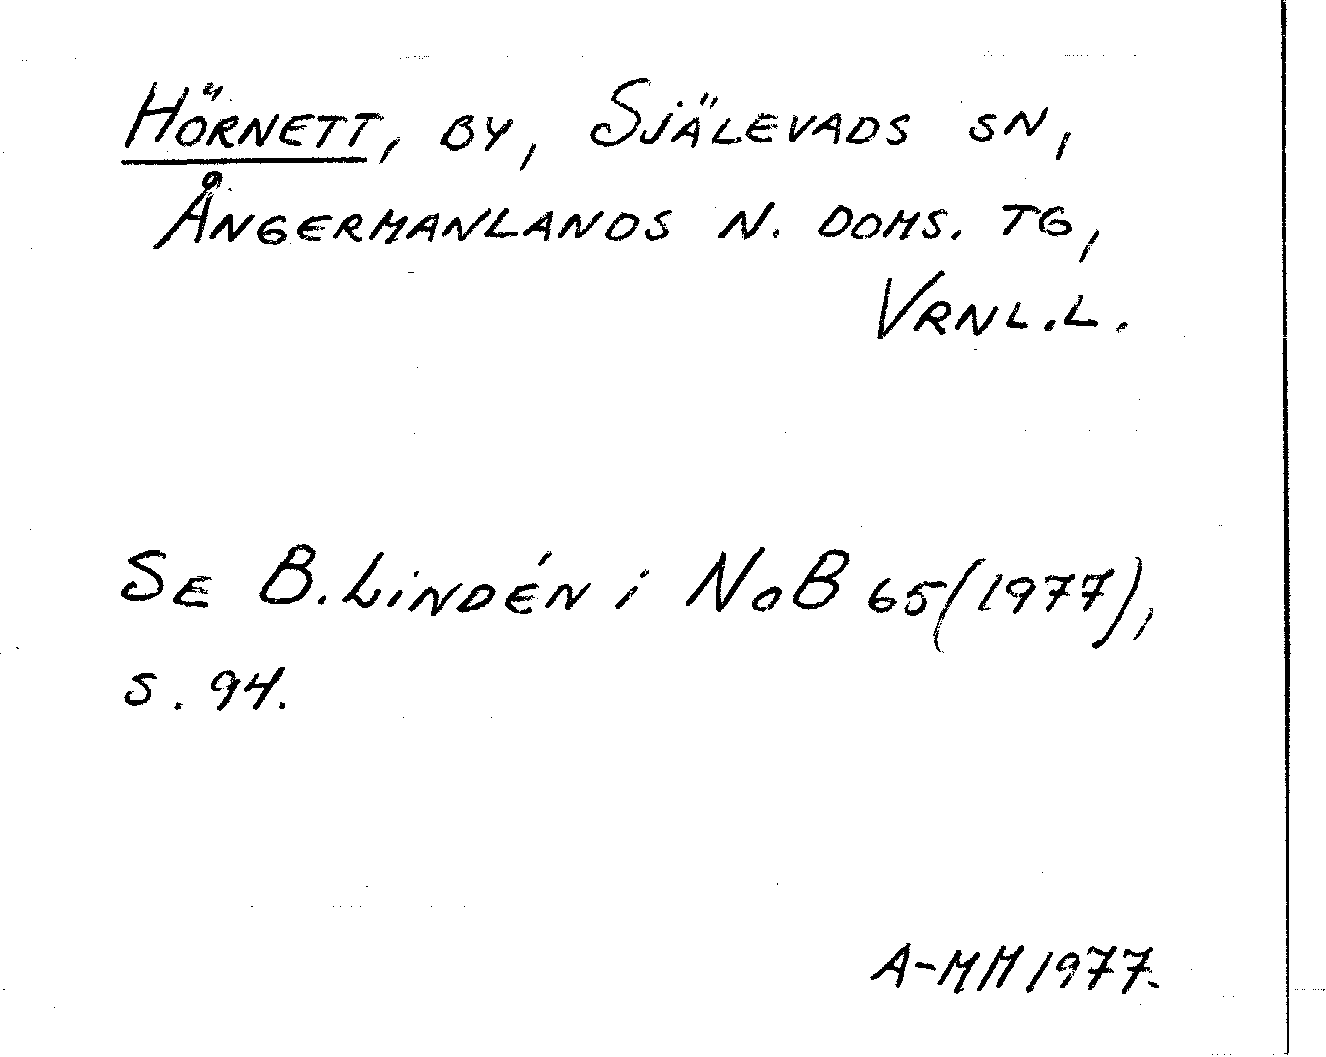 HÖRNETT, BY, SJÄLEVADS SN,
ÅNGERMANLANDS N. DOMS. TG,
VRNL.L.
SE B. LINDÉN i NoB 65(1977),
S. 94.
A-MM 1977.